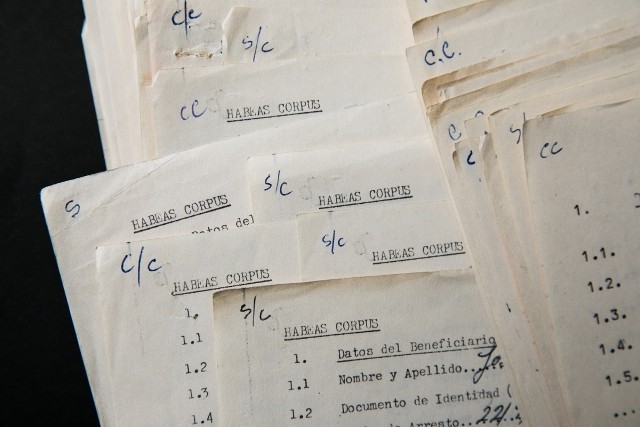 c/c
s/c
c.c.
cc HABEAS CORPUS
S HABEAS CORPUS
Datos del
s/c HABEAS CORPUS
c/c HABEAS CORPUS
1.
1.1
1.2
1.3
1.4
s/c HABEAS CORPUS
s/c HABEAS CORPUS
1. Datos del Beneficiario
1.1 Nombre y Apellido...
1.2 Documento de Identidad (
Arresto..22/
cc
1.
1.1.
1.2.
1.3.
1.4.
1.5.